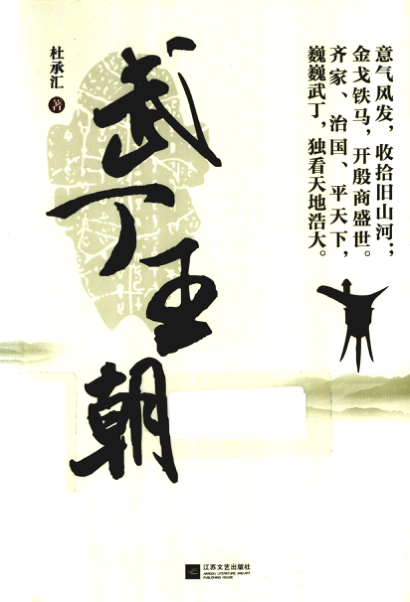 意气风发，收拾旧山河；
金戈铁马，开殷商盛世。
齐家、治国、平天下，
巍巍武丁，独看天地浩大。
杜承汇 著
武丁王朝
江苏文艺出版社
JIANGSU LITERATURE AND ART
PUBLISHING HOUSE